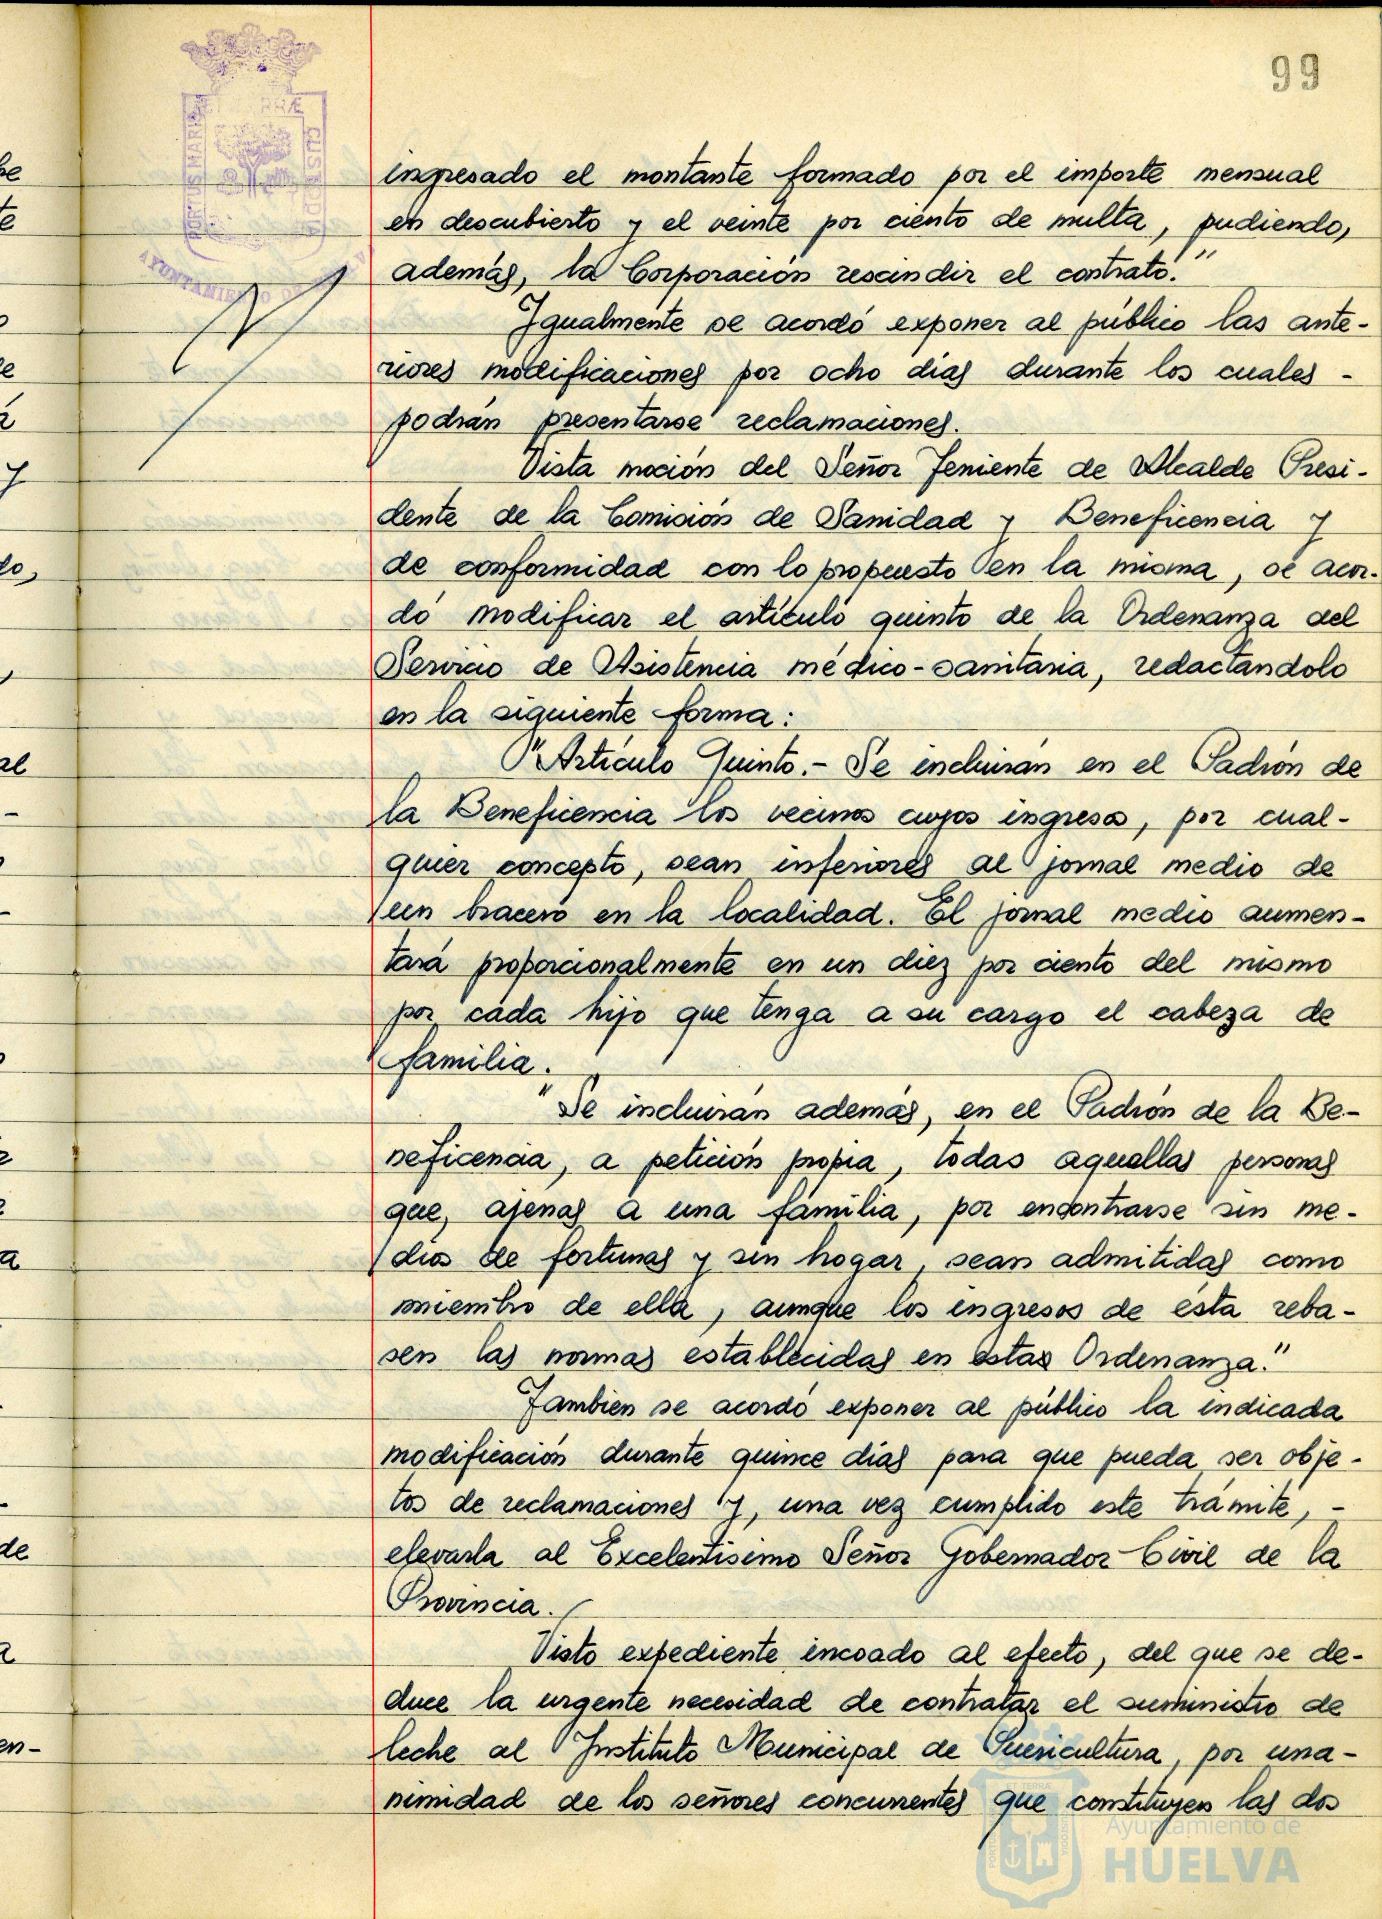 99
PORTUS MARIS
CUSTODIA
AYUNTAMIENTO DE
ingresado el montante formado por el importe mensual
en descubierto y el veinte por ciento de multa, pudiendo,
además, la Corporación rescindir el contrato."
Igualmente se acordó exponer al público las ante-
riores modificaciones por ocho días durante los cuales -
podrán presentarse reclamaciones.
Vista moción del Señor Teniente de Alcalde Presi-
dente de la Comisión de Sanidad y Beneficencia y
de conformidad con lo propuesto en la misma, se acor-
dó modificar el artículo quinto de la Ordenanza del
Servicio de Asistencia médico-sanitaria, redactándolo
en la siguiente forma:
"Artículo Quinto.- Se incluirán en el Padrón de
la Beneficencia los vecinos cuyos ingresos, por cual-
quier concepto, sean inferiores al jornal medio de
un bracero en la localidad. El jornal medio aumen-
tará proporcionalmente en un diez por ciento del mismo
por cada hijo que tenga a su cargo el cabeza de
familia.
"Se incluirán además, en el Padrón de la Be-
neficencia, a petición propia, todas aquellas personas
que, ajenas a una familia, por encontrarse sin me-
dios de fortunas y sin hogar, sean admitidas como
miembro de ella, aunque los ingresos de ésta reba-
sen las normas establecidas en estas Ordenanza."
Tambien se acordó exponer al público la indicada
modificación durante quince días para que pueda ser obje-
tos de reclamaciones y, una vez cumplido este trámite, -
elevarla al Excelentísimo Señor Gobernador Civil de la
Provincia.
Visto expediente incoado al efecto, del que se de-
duce la urgente necesidad de contratar el suministro de
leche al Instituto Municipal de Puericultura, por una-
nimidad de los señores concurrentes que constituyen las dos
Ayuntamiento de
HUELVA